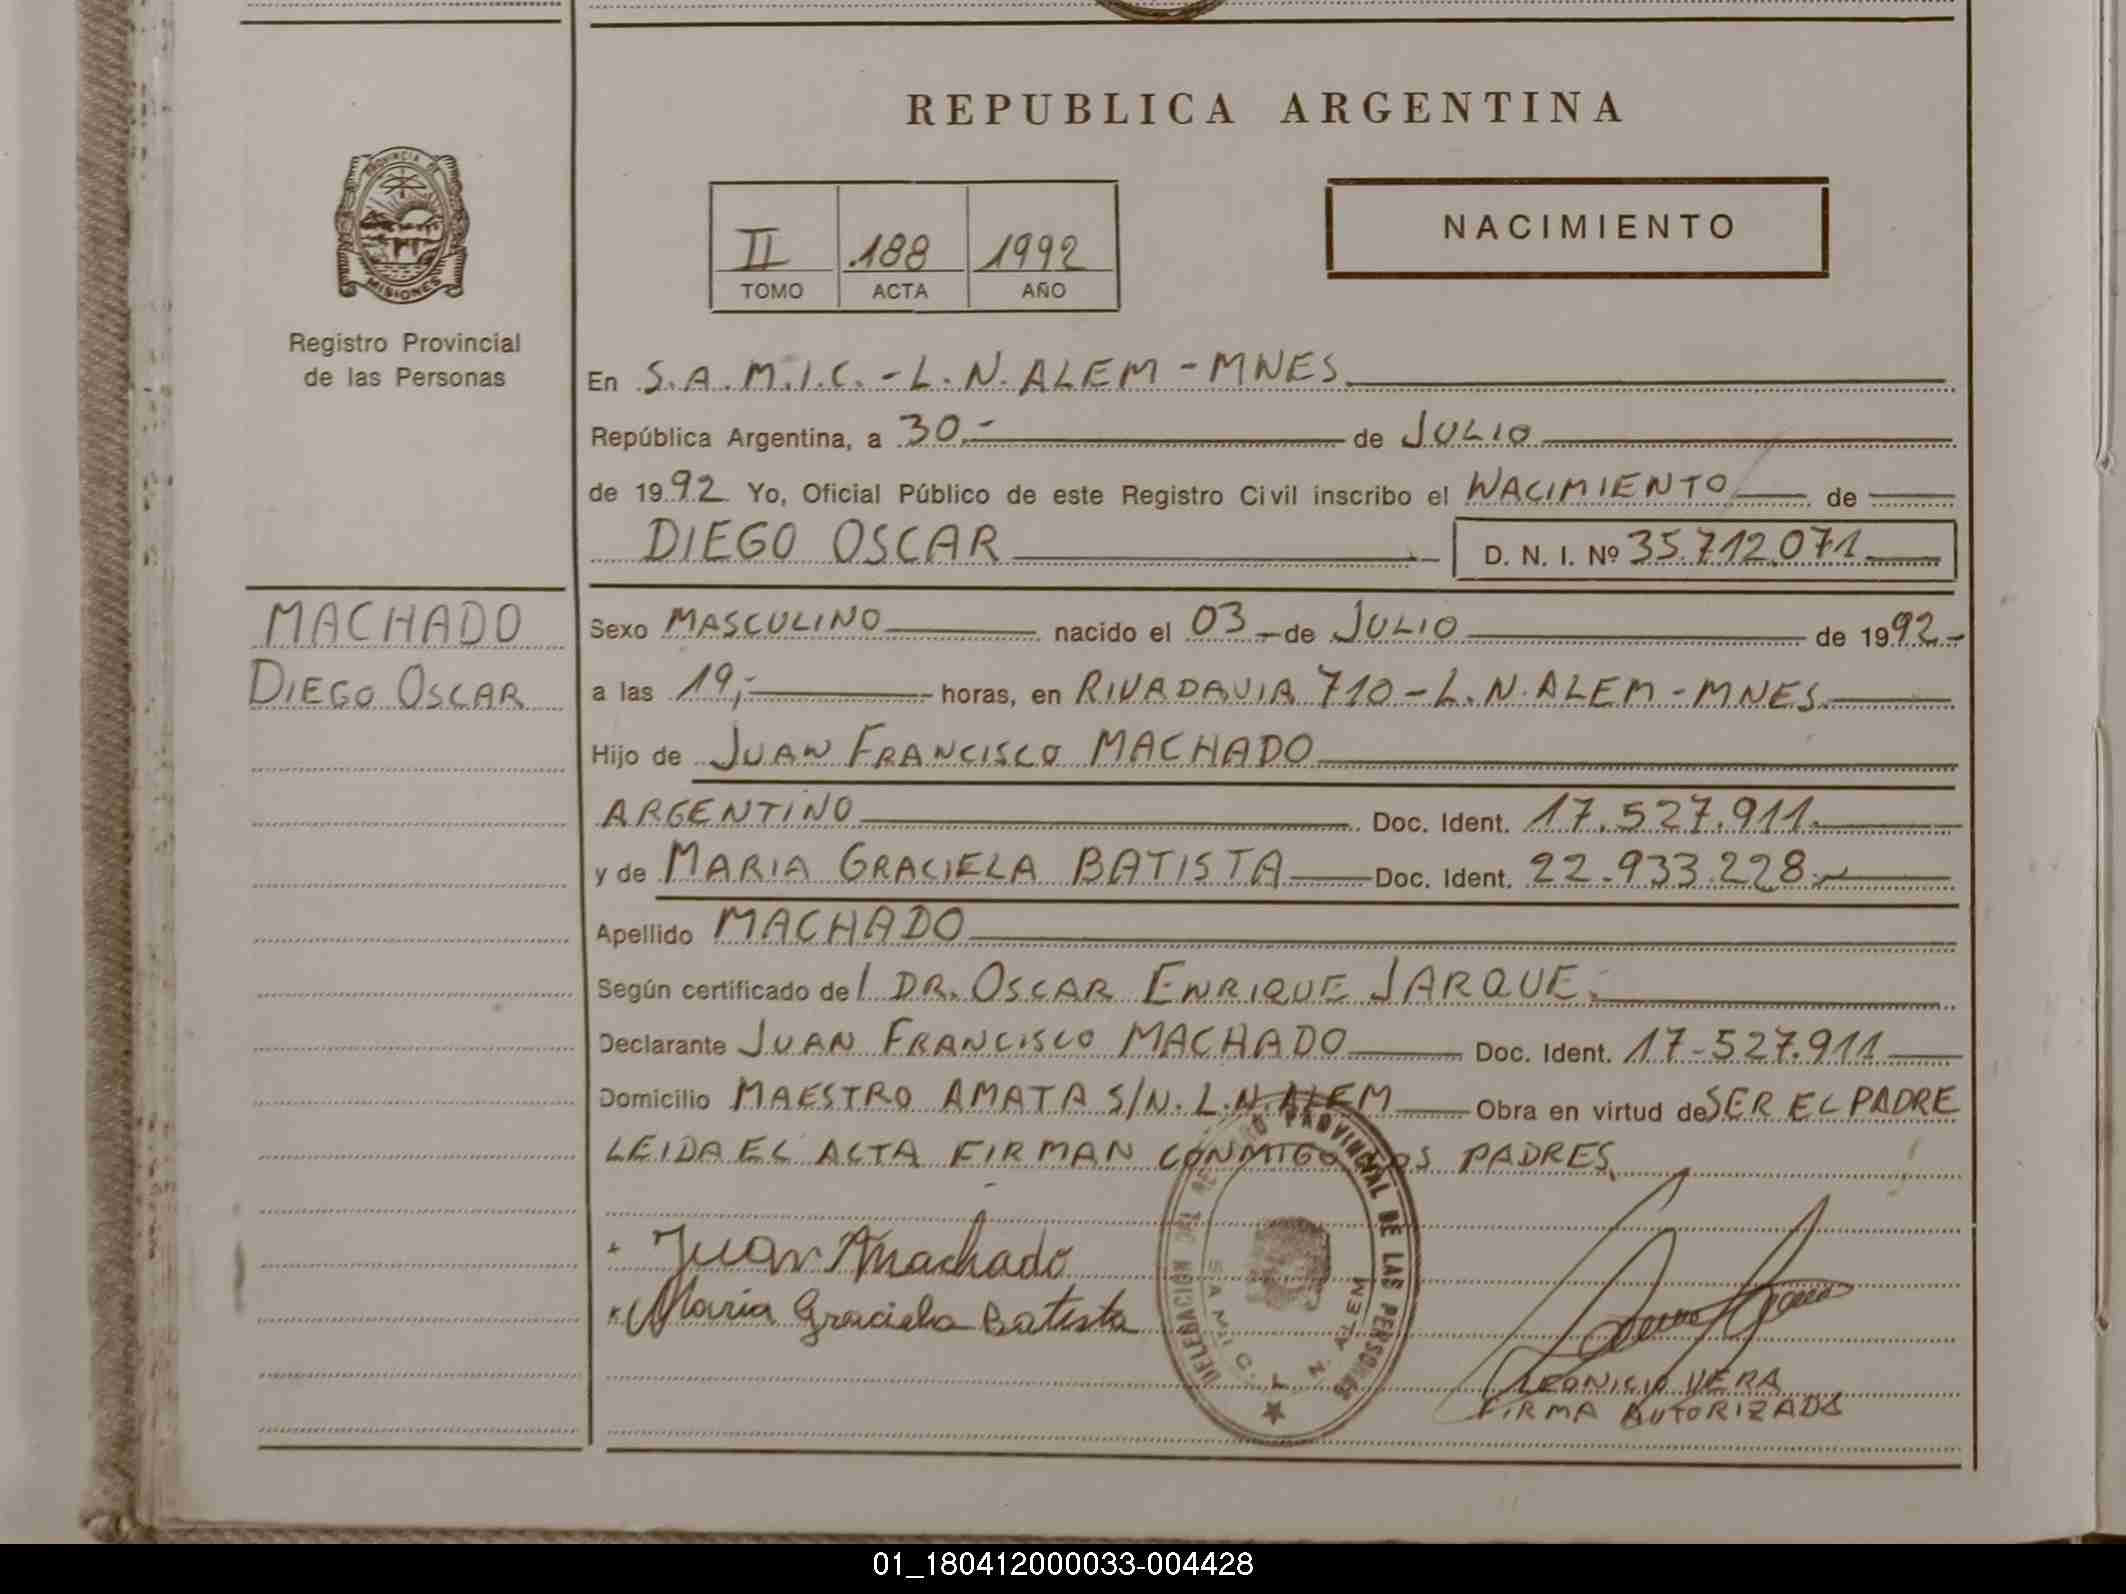 REPUBLICA ARGENTINA
PROVINCIA DE
MISIONES
Registro Provincial
de las Personas
II 188 1992
TOMO ACTA AÑO
NACIMIENTO
En S.A.M.I.C. - L. N. ALEM - MNES
República Argentina, a 30.- de JULIO
de 1992 Yo, Oficial Público de este Registro Civil inscribo el NACIMIENTO de
DIEGO OSCAR D. N. I. Nº 35.712.071
MACHADO
DIEGO OSCAR
Sexo MASCULINO nacido el 03 - de JULIO de 1992.-
a las 19,- horas, en RIVADAVIA 710 - L. N. ALEM - MNES
Hijo de JUAN FRANCISCO MACHADO
ARGENTINO Doc. Ident. 17.527.911
y de MARIA GRACIELA BATISTA Doc. Ident. 22.933.228
Apellido MACHADO
Según certificado del DR. OSCAR ENRIQUE JARQUE.
Declarante JUAN FRANCISCO MACHADO Doc. Ident. 17-527.911
Domicilio MAESTRO AMATA S/N. L.N. ALEM Obra en virtud de SER EL PADRE
LEIDA EL ACTA FIRMAN CONMIGO LOS PADRES
Juan Machado
Maria Graciela Batista
DELEGACIÓN DEL REGISTRO PROVINCIAL DE LAS PERSONAS
S A M I C. L. N. ALEM
LEONICIO VERA
FIRMA AUTORIZADA
01_180412000033-004428